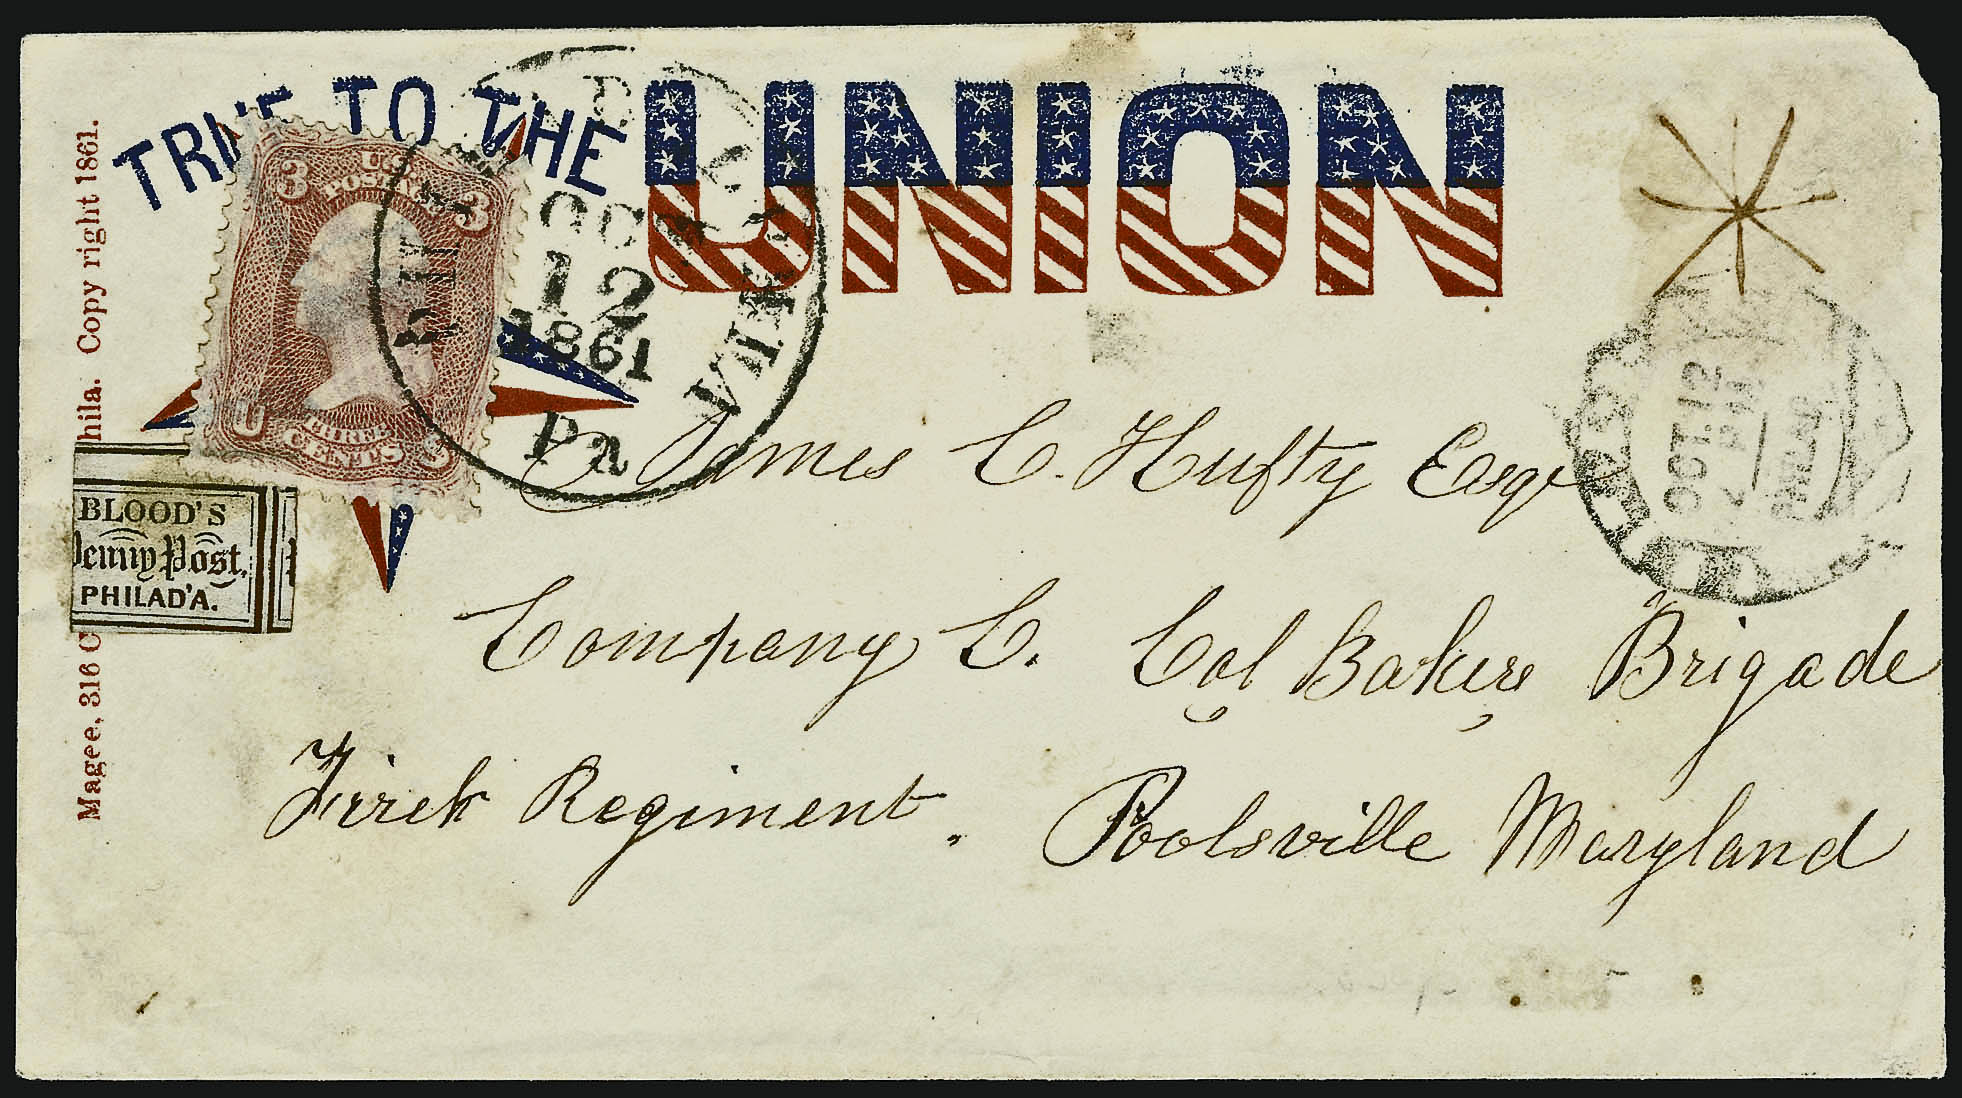 TRUE TO THE UNION
Magee, 316 C hila. Copy right 1861.
3 U.S. POSTAGE 3
U S
THREE CENTS
PHILADELPHIA
OCT
12
1861
Pa
BLOOD'S
Penny Post,
PHILAD'A.
OCT. 12
PHILAD
James C. Hufty Esqr
Company C. Col Bakers Brigade
Firrek Regiment. Poolsville Maryland